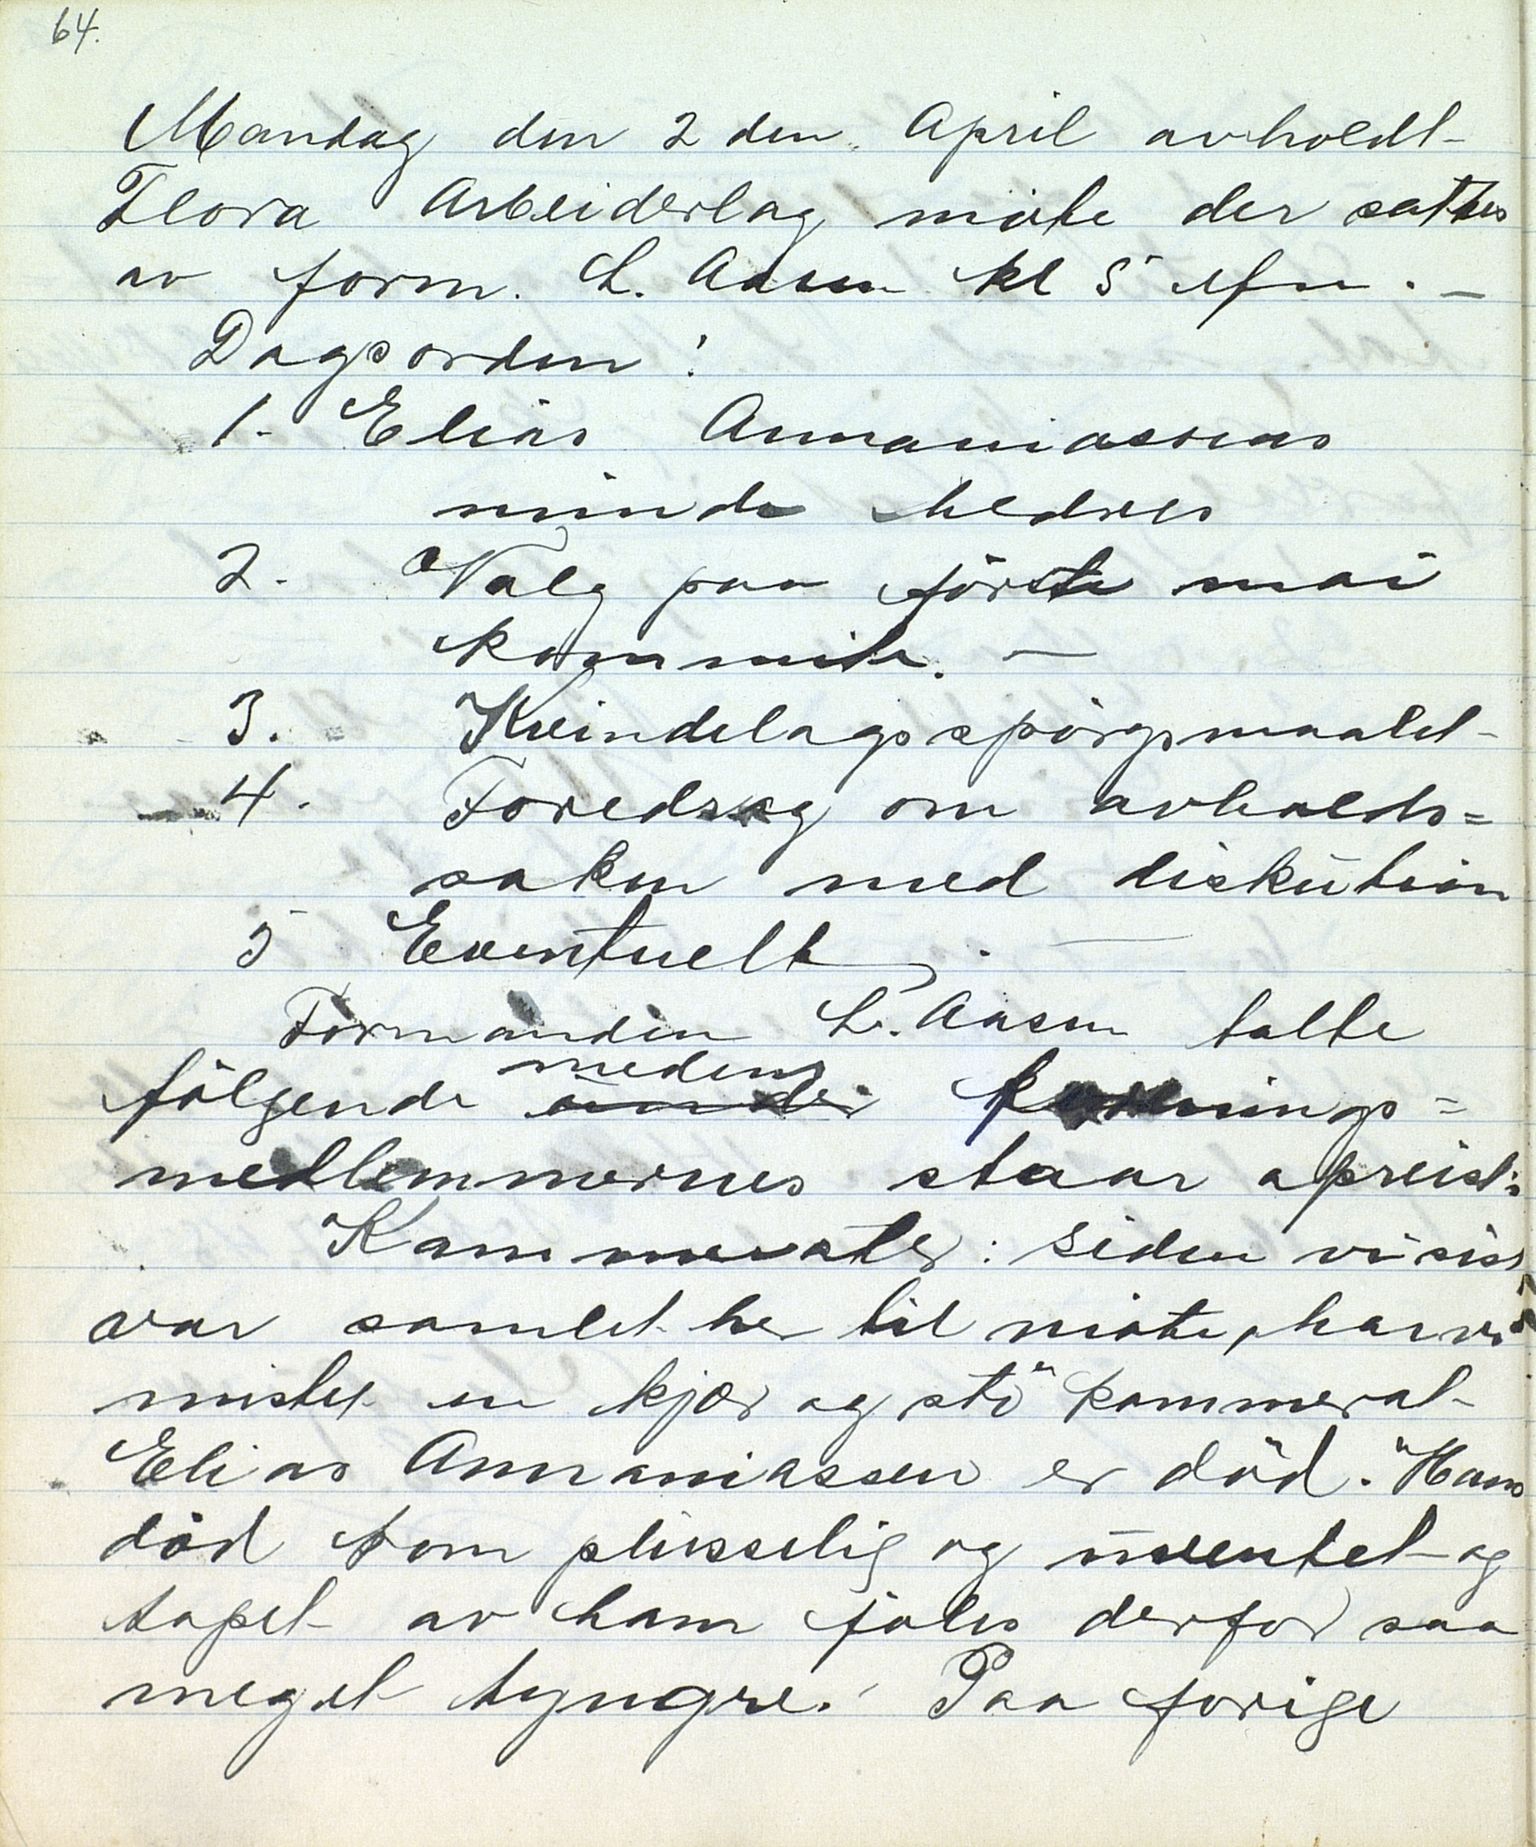 64.
Mandag den 2 den April avholdt
Flora Arbeiderlag möte der sattes
av form. L. Aasen kl 5 efm. –
Dagsorden:
1. Elias Annaniassens
minde hedres
2. Valg paa förste mai
kommite. –
3. Kvindelagsspörgsmaalet
4. Foredrag om avholds=
saken med diskution
5 Eventuelt. —
Formanden L. Aasen talte
medens
fölgende under
medlemmernes staar opreist:
Kammerater: siden vi sist
var samlet her til möte, har vi
mistet en kjær og stö kammerat
Elias Annaniassen er död. Hans
död kom plusselig og uventet og
tapet av ham föles derfor saa
meget tyngre. Paa forige